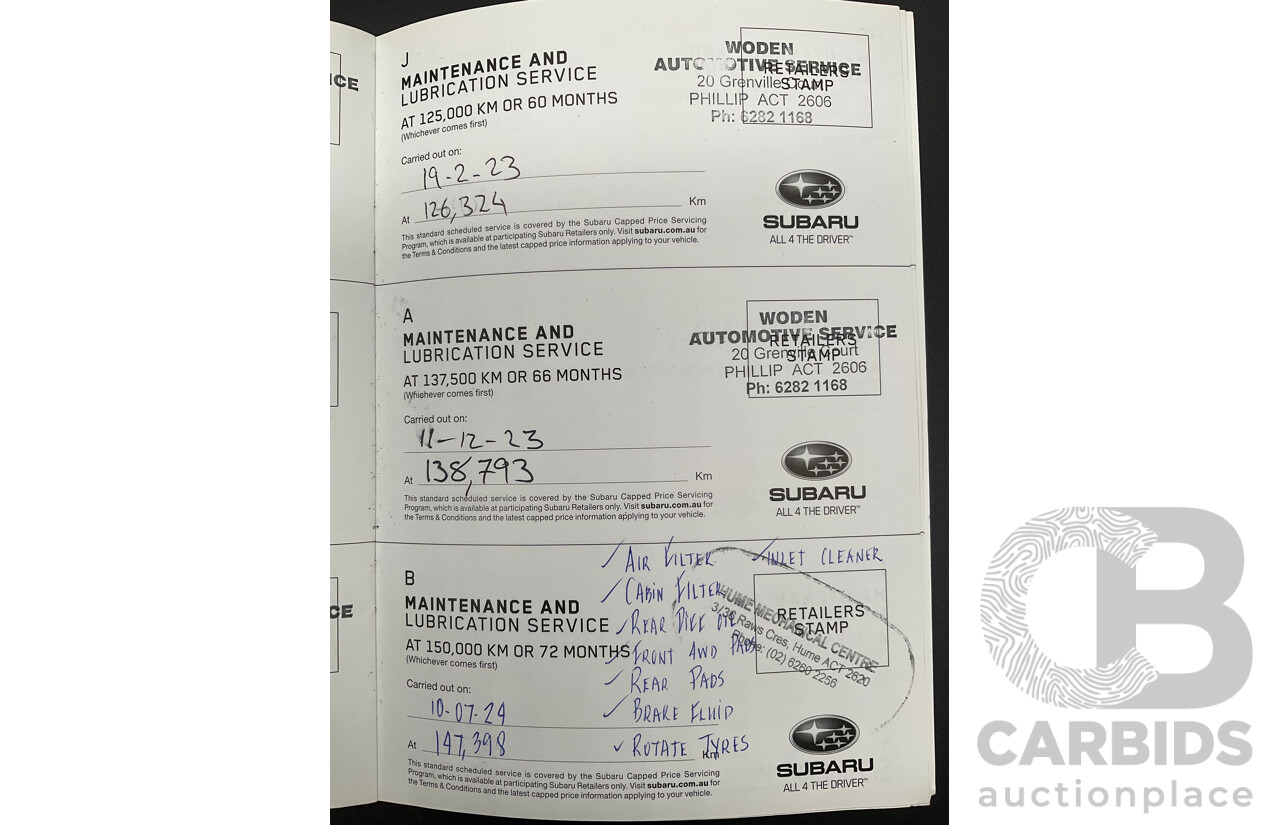 J
MAINTENANCE AND
LUBRICATION SERVICE
AT 125,000 KM OR 60 MONTHS
(Whichever comes first)
Carried out on:
19-2-23
At 126,324 Km
This standard scheduled service is covered by the Subaru Capped Price Servicing
Program, which is available at participating Subaru Retailers only. Visit subaru.com.au for
the Terms & Conditions and the latest capped price information applying to your vehicle.
WODEN
AUTOMOTIVE SERVICE
20 Grenville Court
PHILLIP ACT 2606
Ph: 6282 1168
RETAILERS
STAMP
SUBARU
ALL 4 THE DRIVER™
ICE
A
MAINTENANCE AND
LUBRICATION SERVICE
AT 137,500 KM OR 66 MONTHS
(Whichever comes first)
Carried out on:
11-12-23
At 138,793 Km
This standard scheduled service is covered by the Subaru Capped Price Servicing
Program, which is available at participating Subaru Retailers only. Visit subaru.com.au for
the Terms & Conditions and the latest capped price information applying to your vehicle.
WODEN
AUTOMOTIVE SERVICE
20 Grenville Court
PHILLIP ACT 2606
Ph: 6282 1168
RETAILERS
STAMP
SUBARU
ALL 4 THE DRIVER™
CE
B
MAINTENANCE AND
LUBRICATION SERVICE
AT 150,000 KM OR 72 MONTHS
(Whichever comes first)
Carried out on:
10-07-24
At 147,398 Km
This standard scheduled service is covered by the Subaru Capped Price Servicing
Program, which is available at participating Subaru Retailers only. Visit subaru.com.au for
the Terms & Conditions and the latest capped price information applying to your vehicle.
✓ AIR FILTER ✓ INLET CLEANER
✓ CABIN FILTER
✓ REAR DIFF OIL
✓ FRONT 4WD PADS
✓ REAR PADS
✓ BRAKE FLUID
✓ ROTATE TYRES
HUME MECHANICAL CENTRE
3/36 Raws Cres, Hume ACT 2620
Phone: (02) 6260 2256
RETAILERS
STAMP
SUBARU
ALL 4 THE DRIVER™
CB
CARBIDS
auctionplace